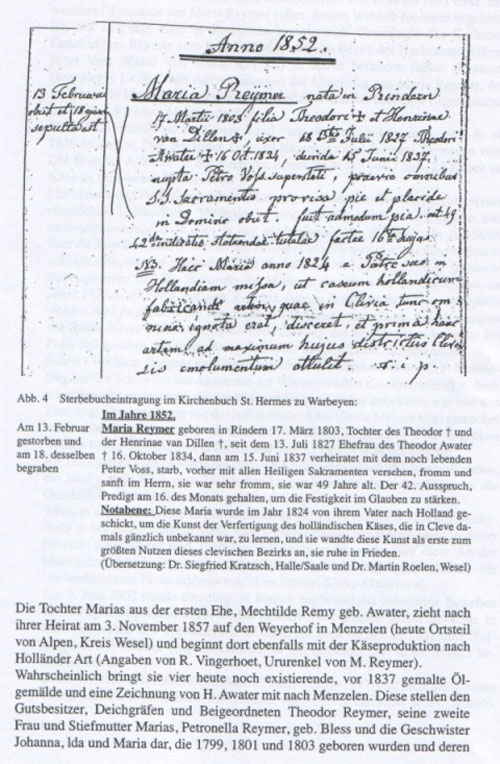 Anno 1852.
13 Februarii
obiit et 18 ejus
sepulta est.
Maria Reymer nata in Rindern
17 Martii 1803 filia Theodori ✝ et Henrinae
van Dillen ✝, uxor Julii 1827 Theodori
Awater ✝ 16 Oct. 1834, deinde 15 Junii 1837
nupta Petro Voss superstite, omnibus
S.S. Sacramentis provisa pie et placide
in Domino obiit, fuit admodum pia. aet. 49
42
NB. Haec Maria anno 1824 a Patre suo in
Hollandiam missa, ut caseum hollandicum
fabricandi artem, quae in Clivia tunc om
nino ignota erat, disceret, et prima hanc
artem ad maximum hujus districtus Clivi
emolumentum attulit. r. i. p.
Abb. 4 Sterbebucheintragung im Kirchenbuch St. Hermes zu Warbeyen:
Im Jahre 1852.
Am 13. Februar
gestorben und
am 18. desselben
begraben
Maria Reymer geboren in Rindern 17. März 1803, Tochter des Theodor † und
der Henrinae van Dillen †, seit dem 13. Juli 1827 Ehefrau des Theodor Awater
† 16. Oktober 1834, dann am 15. Juni 1837 verheiratet mit dem noch lebenden
Peter Voss, starb, vorher mit allen Heiligen Sakramenten versehen, fromm und
sanft im Herrn, sie war sehr fromm, sie war 49 Jahre alt. Der 42. Ausspruch,
Predigt am 16. des Monats gehalten, um die Festigkeit im Glauben zu stärken.
Notabene: Diese Maria wurde im Jahr 1824 von ihrem Vater nach Holland ge-
schickt, um die Kunst der Verfertigung des holländischen Käses, die in Cleve da-
mals gänzlich unbekannt war, zu lernen, und sie wandte diese Kunst als erste zum
größten Nutzen dieses clevischen Bezirks an, sie ruhe in Frieden.
(Übersetzung: Dr. Siegfried Kratzsch, Halle/Saale und Dr. Martin Roelen, Wesel)
Die Tochter Marias aus der ersten Ehe, Mechtilde Remy geb. Awater, zieht nach
ihrer Heirat am 3. November 1857 auf den Weyerhof in Menzelen (heute Ortsteil
von Alpen, Kreis Wesel) und beginnt dort ebenfalls mit der Käseproduktion nach
Holländer Art (Angaben von R. Vingerhoet, Ururenkel von M. Reymer).
Wahrscheinlich bringt sie vier heute noch existierende, vor 1837 gemalte Öl-
gemälde und eine Zeichnung von H. Awater mit nach Menzelen. Diese stellen den
Gutsbesitzer, Deichgräfen und Beigeordneten Theodor Reymer, seine zweite
Frau und Stiefmutter Marias, Petronella Reymer, geb. Bless und die Geschwister
Johanna, Ida und Maria dar, die 1799, 1801 und 1803 geboren wurden und deren